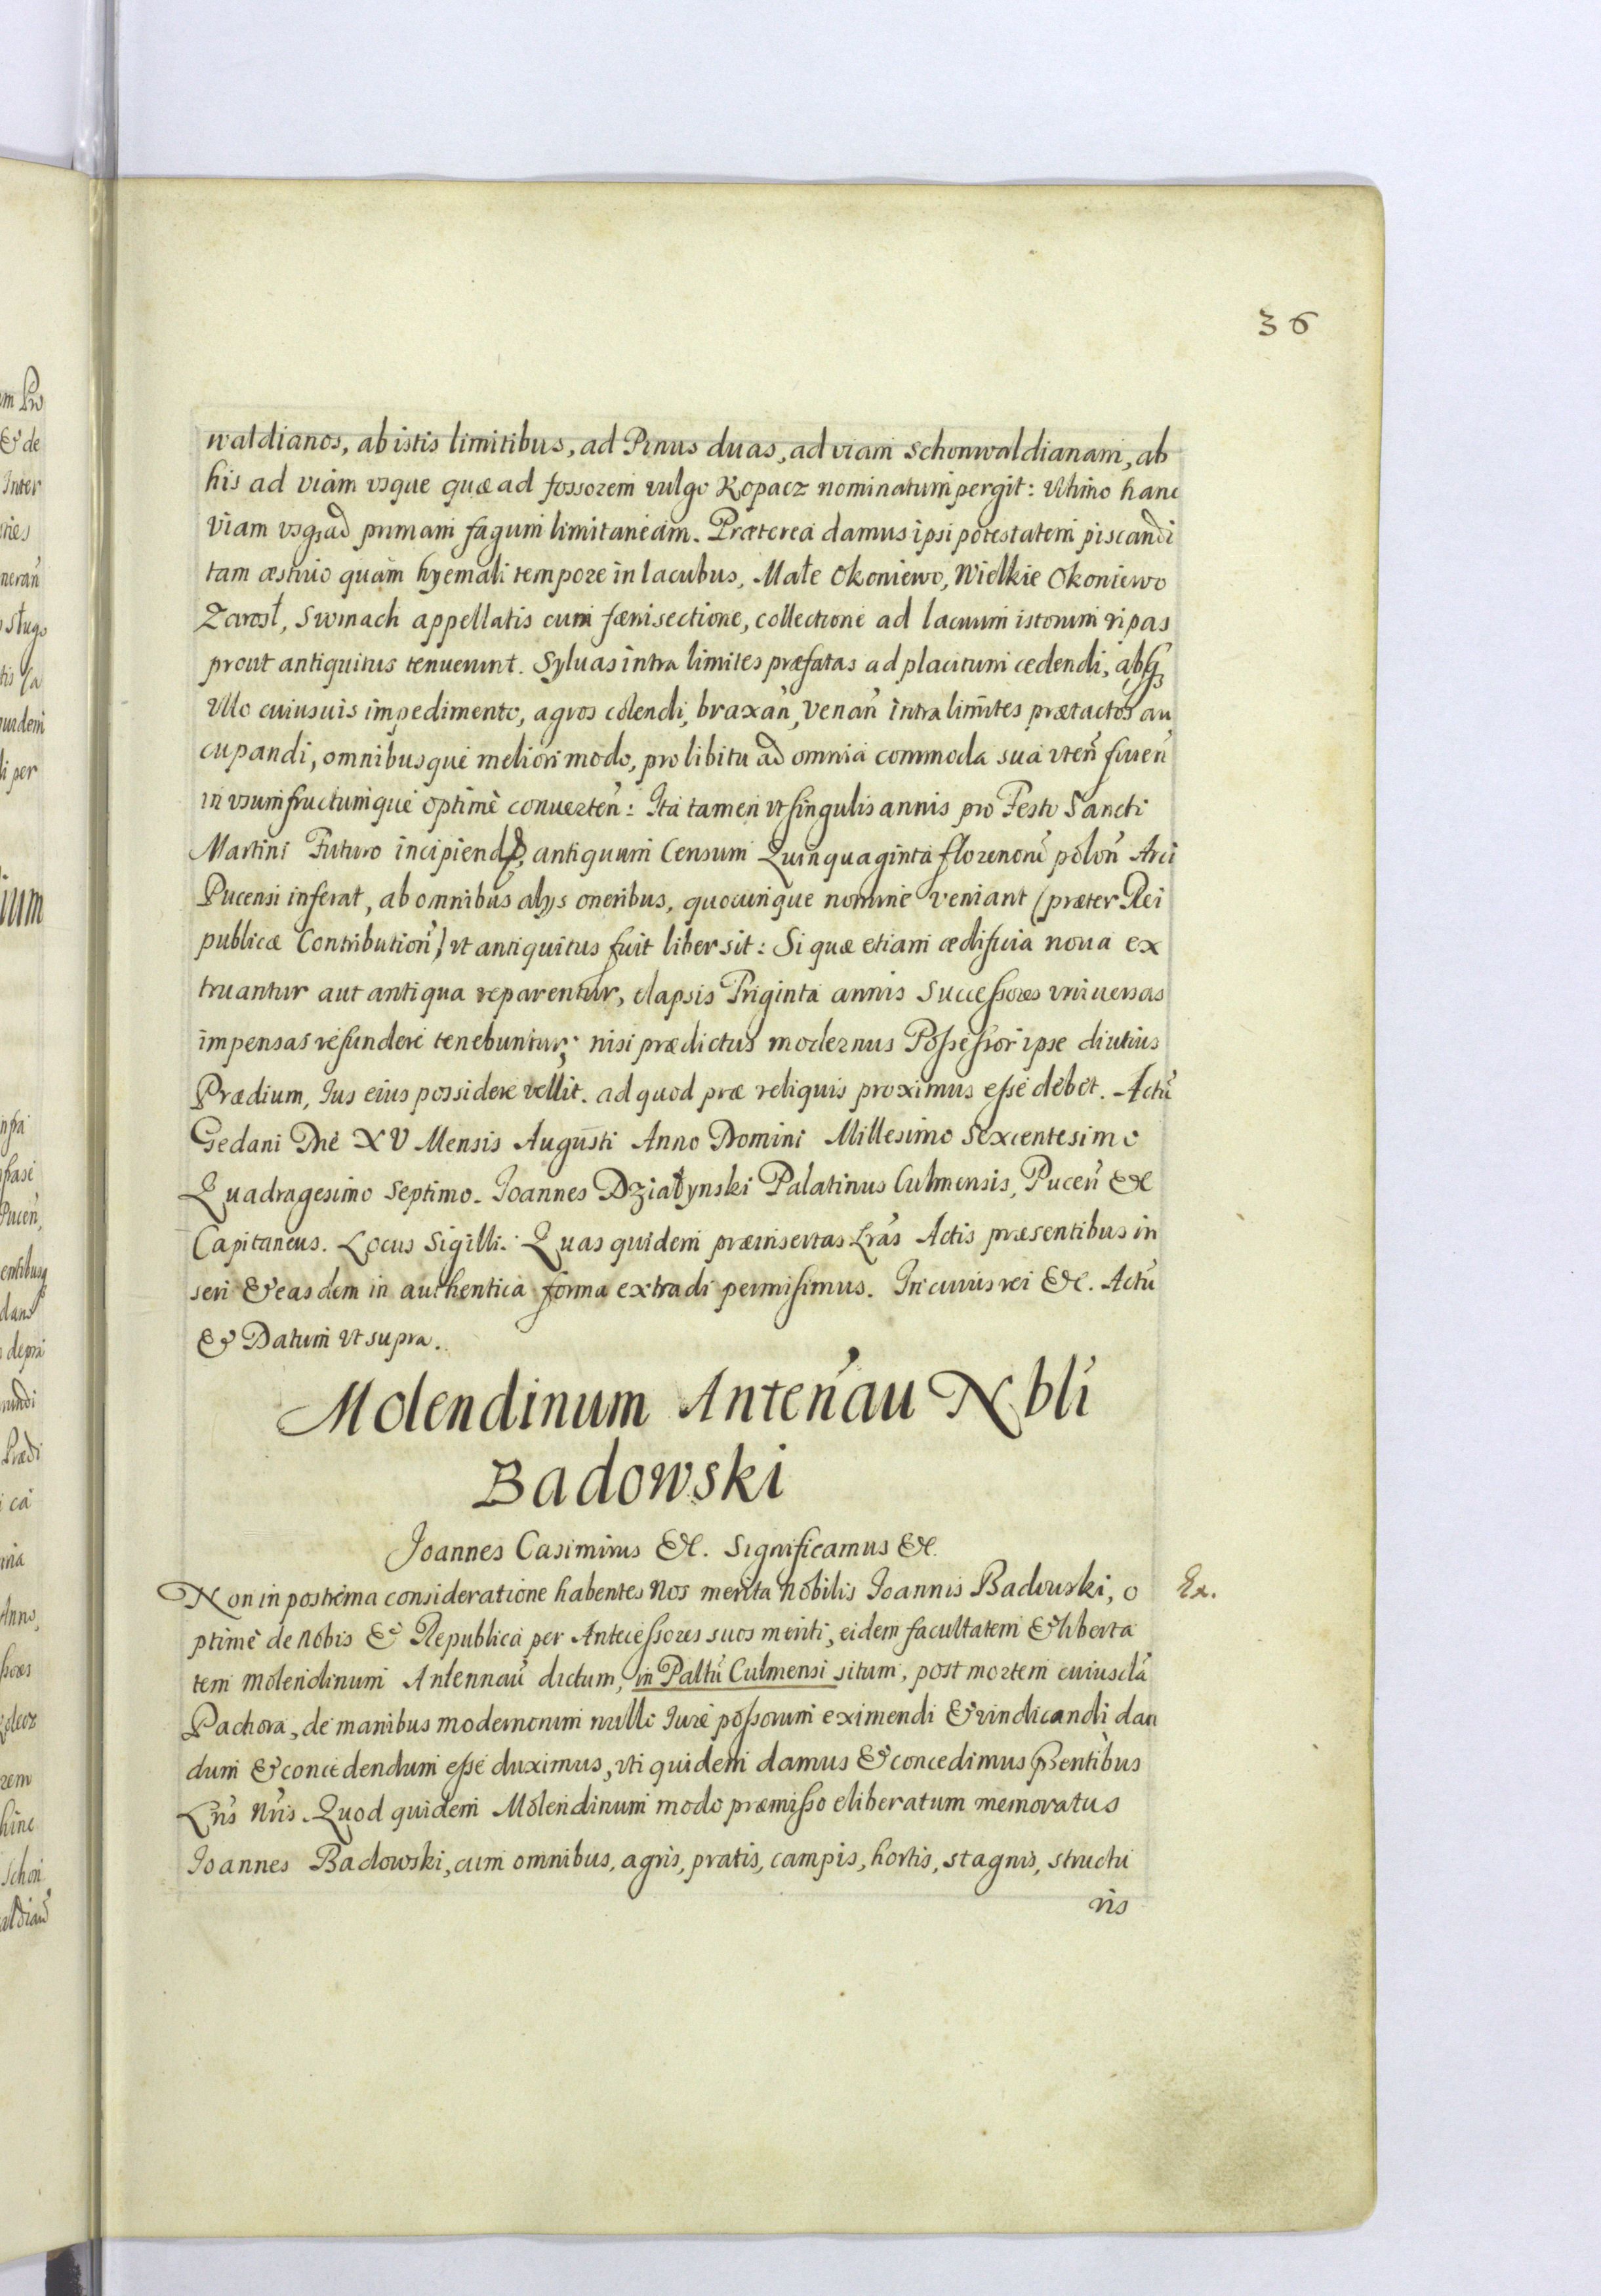 36
waldianos, ab istis limitibus, ad Pinus duas, ad viam Schonwaldianam, ab
his ad viam vsque quæ ad fossorem vulgo Kopacz nominatum pergit: Vltimo hanc
viam vsq₃ ad primam fagum limitaneam. Præterea damus ipsi potestatem piscandi
tam æstiuo quàm hyemali tempore in lacubus, Małe Okoniewo, Wielkie Okoniewo
Zarosł, Swinach appellatis cum fænisectione, collectione ad lacuum istorum ripas
prout antiquitus tenuerunt. Syluas intra limites præfatas ad placitum cedendi, absq₃
vllo cuiusuis impedimento, agros colendi, braxan̄, venan̄ intra limites prætactos au
cupandi, omnibusque meliori modo, pro libitu ad omnia commoda sua vten̄ fruen̄
in vsumfructumque optimè conuerten̄: Ita tamen vt singulis annis pro Festo Sancti
Martini Futuro incipiendo, antiquum Censum Quinquaginta florenorū polon̄ Arci
Pucensi inferat, ab omnibus alijs oneribus, quocunque nomine veniant (præter Rei
publicæ Contribution̄) vt antiquitus fuit liber sit: Si quæ etiam ædificia noua ex
truantur aut antiqua reparentur, elapsis Triginta annis Successores vniuersas
impensas refundere tenebuntur; nisi prædictus modernus Possessor ipse diutius
Prædium, Ius eius possidere vellit. ad quod præ reliquis proximus esse debet. Actū
Gedani Die XV Mensis Augusti Anno Domini Millesimo Sexcentesimo
Quadragesimo Septimo. Joannes Działynski Palatinus Culmensis, Pucen̄ &c
Capitaneus. Locus Sigilli. Quas quidem præinsertas Lrās Actis præsentibus in
seri & easdem in authentica forma extradi permisimus. In cuius rei &c. Actū
& Datum vt supra.
Molendinum Anten̄au Nbli
Badowski
Joannes Casimirus &c. Significamus &c.
Non in postrema consideratione habentes Nos merita Nobilis Joannis Badowski, o
Ex.
ptimè de Nobis & Republica per Antecessores suos meriti, eidem facultatem & liberta
tem Molendinum Antennau dictum, in Paltū Culmensi situm, post mortem cuiusdā
Pachora, de manibus modernorum nullo Iure possorum eximendi & vindicandi dan
dum & concedendum esse duximus, vti quidem damus & concedimus p̄sentibus
Lrīs Nrīs. Quod quidem Molendinum modo præmisso eliberatum memoratus
Joannes Badowski, cum omnibus, agris, pratis, campis, hortis, stagnis, structu
ris